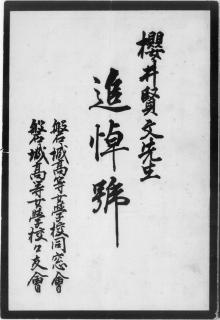 櫻井賢文先生
追悼號
磐城高等女學校同窓會
磐城高等女學校々友會